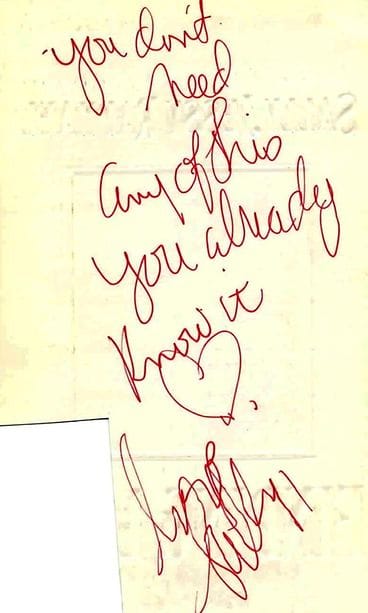 you don't
need
any of this
you already
know it